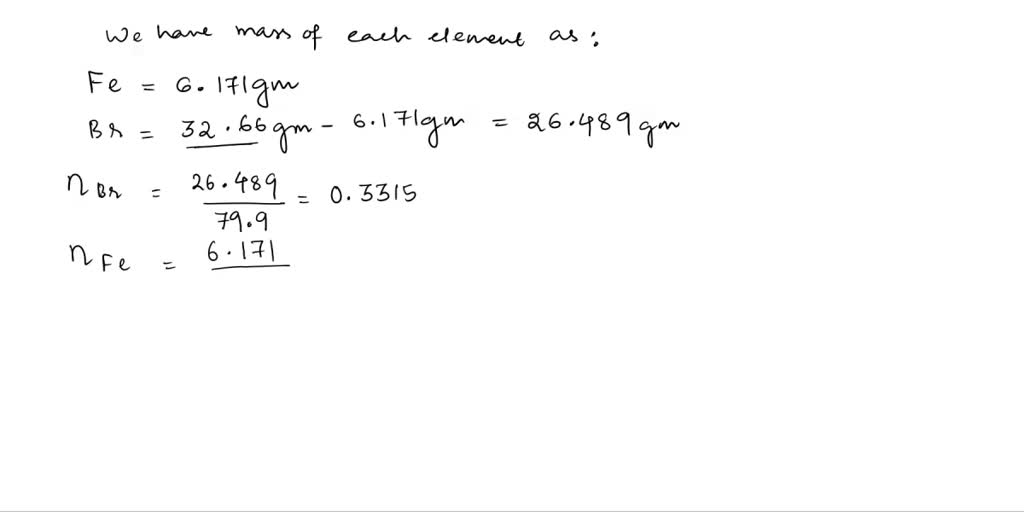 We have mass of each element as:
Fe = 6.171gm
Br = 32.66gm - 6.171gm = 26.489gm
nBr = 26.489/79.9 = 0.3315
nFe = 6.171